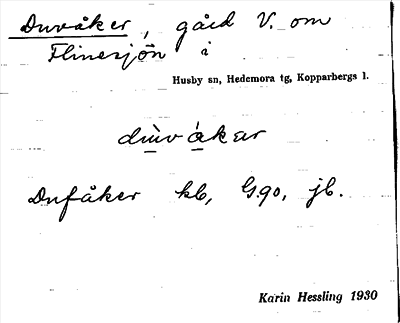 Duvåker, gård V. om
Flinesjön i
Husby sn, Hedemora tg, Kopparbergs l.
du̱v a̱kar
Dufåker kb, G.qo, jb.
Karin Hessling 1930